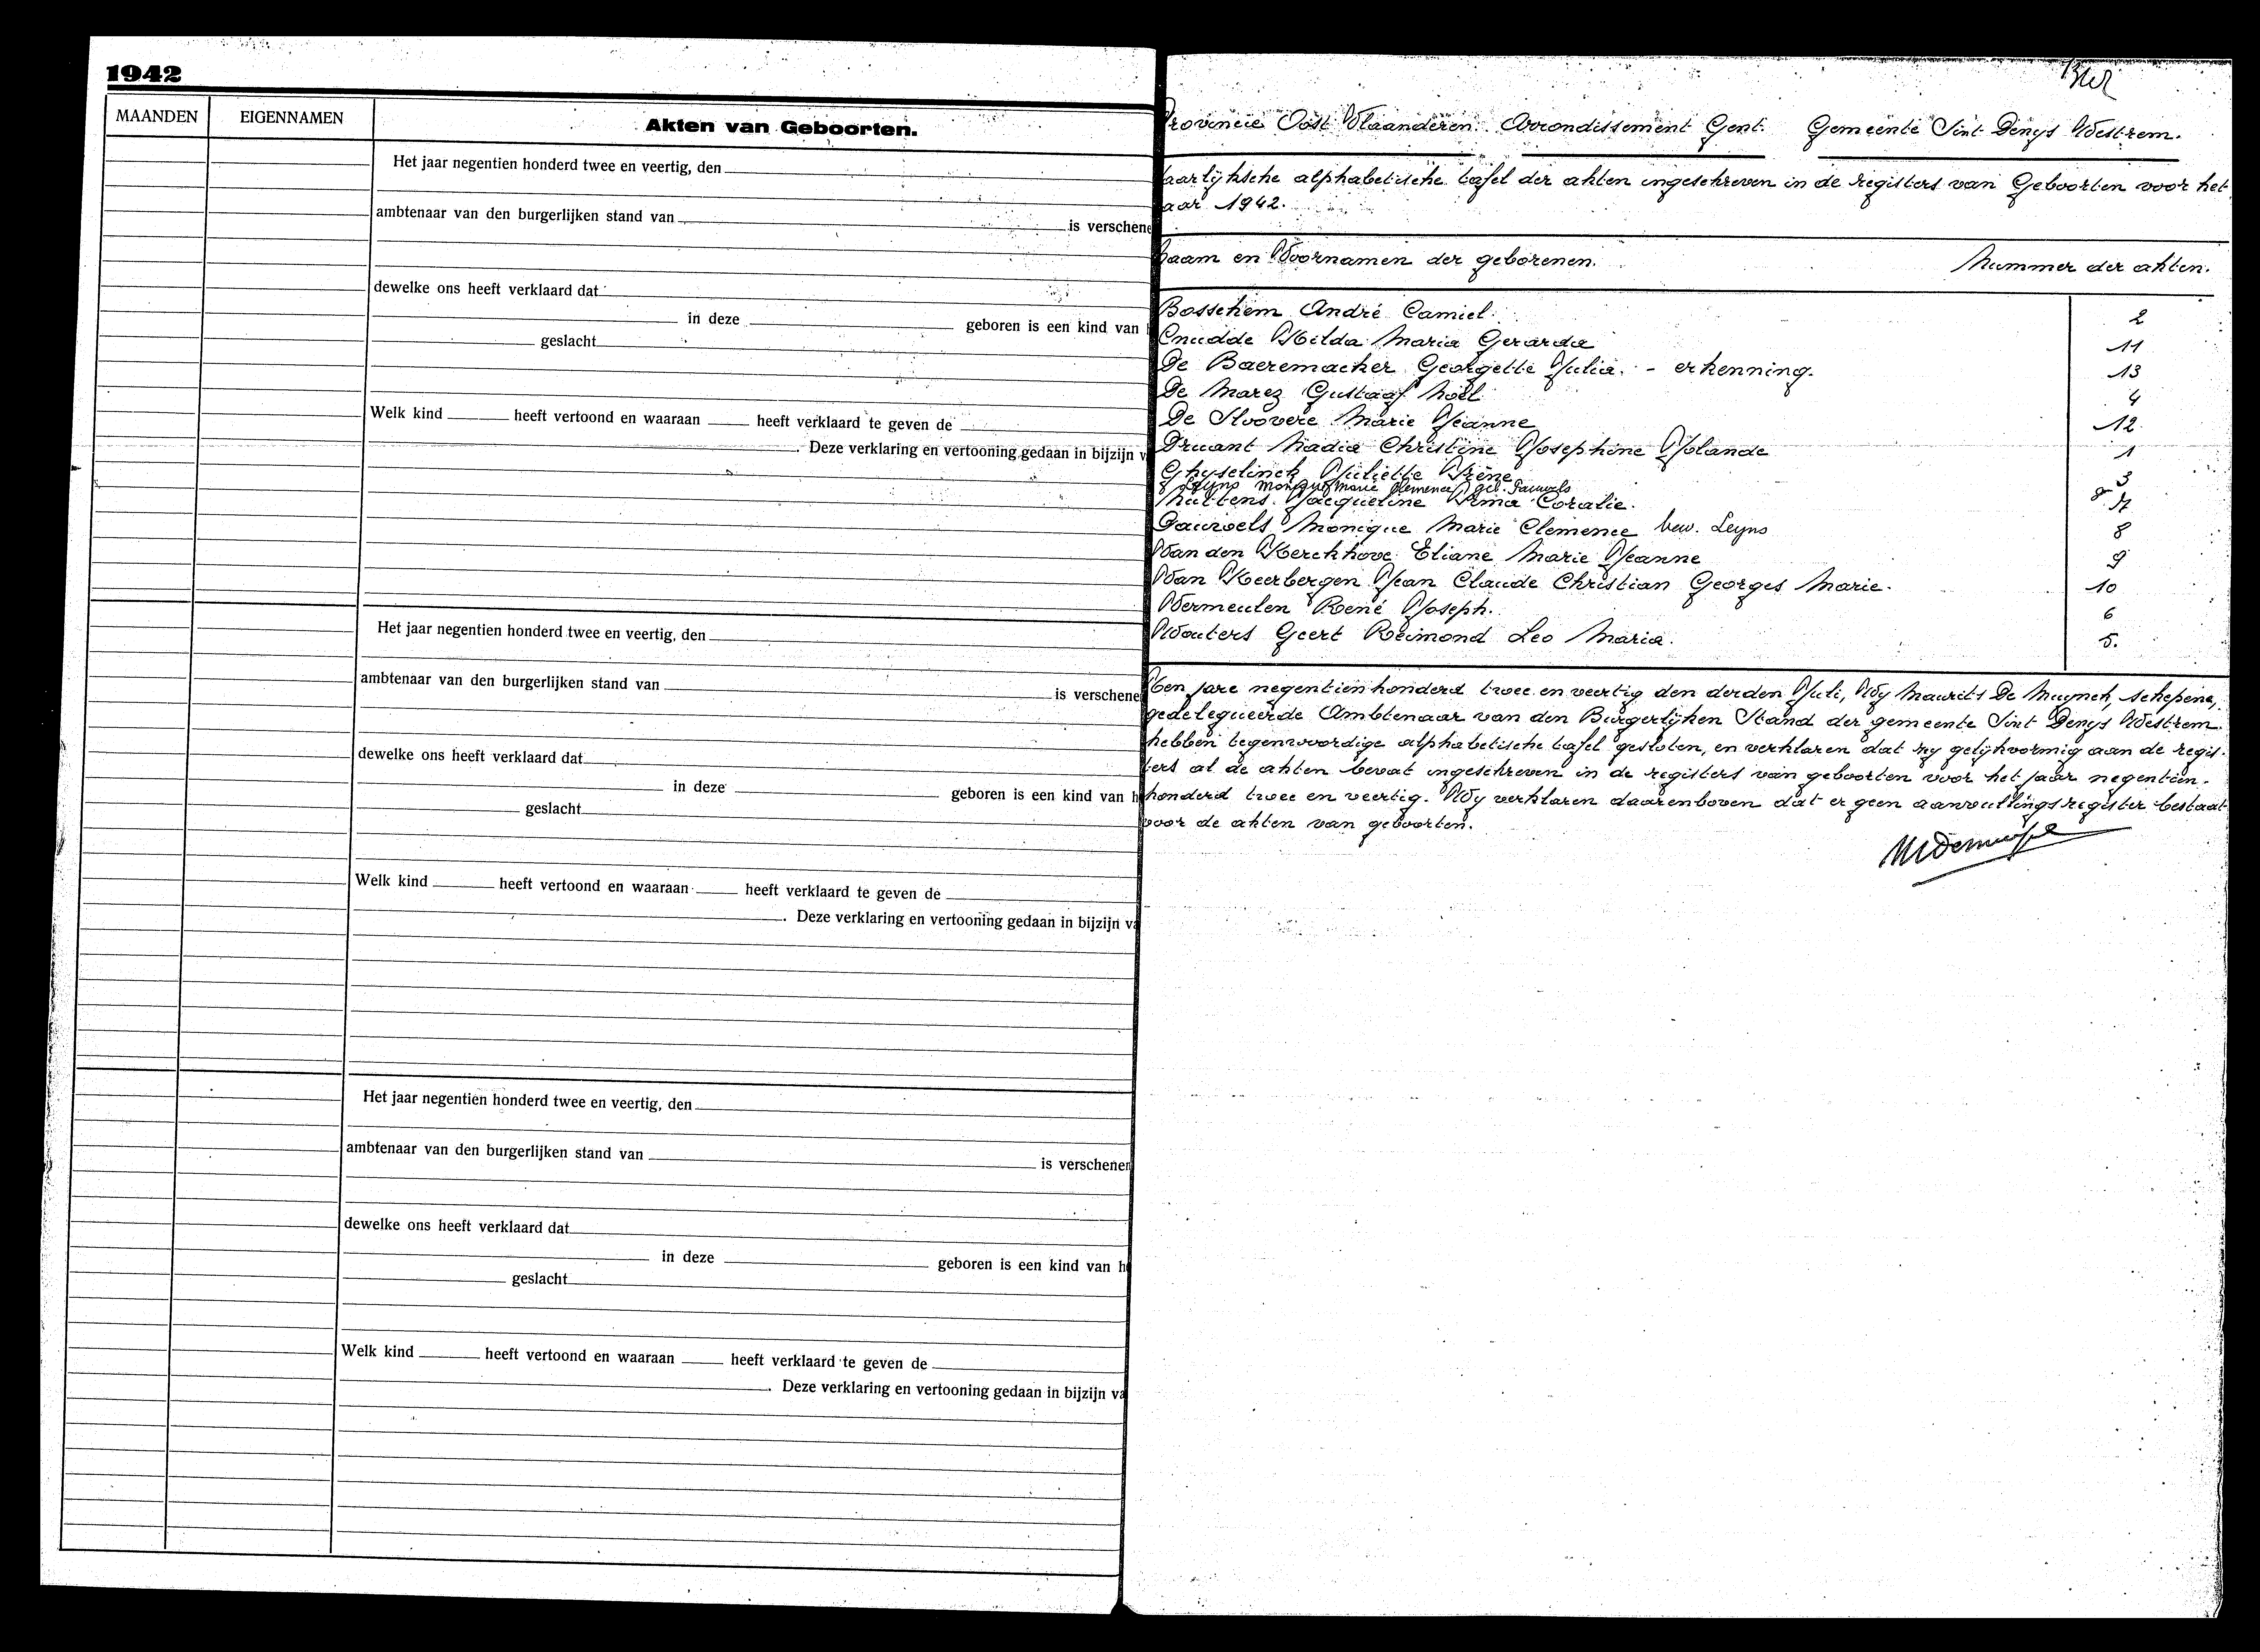 1942
MAANDEN
EIGENNAMEN
Akten van Geboorten.
Het jaar negentien honderd twee en veertig, den
ambtenaar van den burgerlijken stand van
is verschene
dewelke ons heeft verklaard dat
in deze
geboren is een kind van
geslacht
Welk kind heeft vertoond en waaraan heeft verklaard te geven de
Deze verklaring en vertooning gedaan in bijzijn v
Het jaar negentien honderd twee en veertig, den
ambtenaar van den burgerlijken stand van
is verschene
dewelke ons heeft verklaard dat
in deze
geboren is een kind van h
geslacht
Welk kind heeft vertoond en waaraan heeft verklaard te geven de
Deze verklaring en vertooning gedaan in bijzijn va
Het jaar negentien honderd twee en veertig, den
ambtenaar van den burgerlijken stand van
is verschenen
dewelke ons heeft verklaard dat
in deze
geboren is een kind van h
geslacht
Welk kind heeft vertoond en waaraan heeft verklaard te geven de
Deze verklaring en vertooning gedaan in bijzijn va
Provincie Oost Vlaanderen. Arrondissement Gent. Gemeente Sint Denys Westrem.
aarlijksche alphabetische tafel der akten ingeschreven in de registers van Geboorten voor het
aar 1942.
Naam en Voornamen der geborenen. Nummer der akten.
Bosschem André Camiel. 2
Cnudde Hilda Maria Gerarda 11
De Baeremaeker Georgette Julia. - erkenning. 13
De Marez Gustaaf Noël 4
De Stoovere Marie Jeanne 12
Druant Nadia Christine Josephine Yolande 1
Ghyselinck Juliette Irène 3
Leyns Monique Marie Clemence gel. Pauwels 8
Nuttens Jacqueline Irma Coralie. 7
Pauwels Monique Marie Clemence bew. Leyns 8
Van den Kerckhove Eliane Marie Jeanne 9
Van Keerbergen Jean Claude Christian Georges Marie. 10
Vermeulen René Joseph. 6
Wouters Geert Reimond Leo Maria. 5.
Ten jare negentien honderd twee en veertig den derden Juli, Wy Maurits De Muynck, schepene,
gedelegueerde Ambtenaar van den Burgerlyken Stand der gemeente Sint Denys Westrem
hebben tegenwoordige alphabetische tafel gesloten, en verklaren dat zy gelykvormig aan de regis-
ters al de akten bevat ingeschreven in de registers van geboorten voor het jaar negentien-
honderd twee en veertig. Wy verklaren daarenboven dat er geen aanvullingsregister bestaat
voor de akten van geboorten.